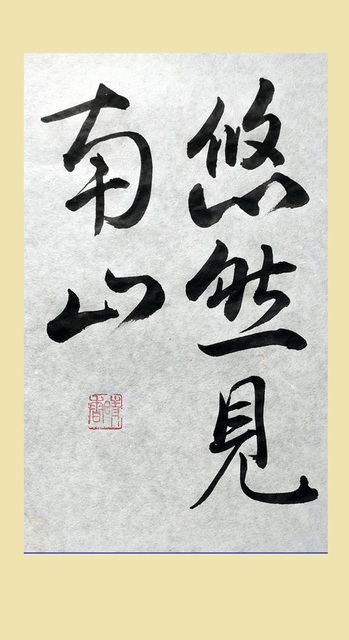 悠然見
南山